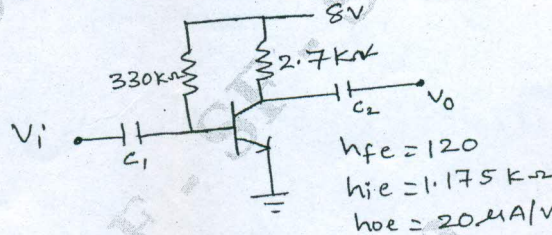 8V
330kΩ
2.7kΩ
Vi
C1
C2
Vo
hfe = 120
hie = 1.175 kΩ
hoe = 20 µA/V